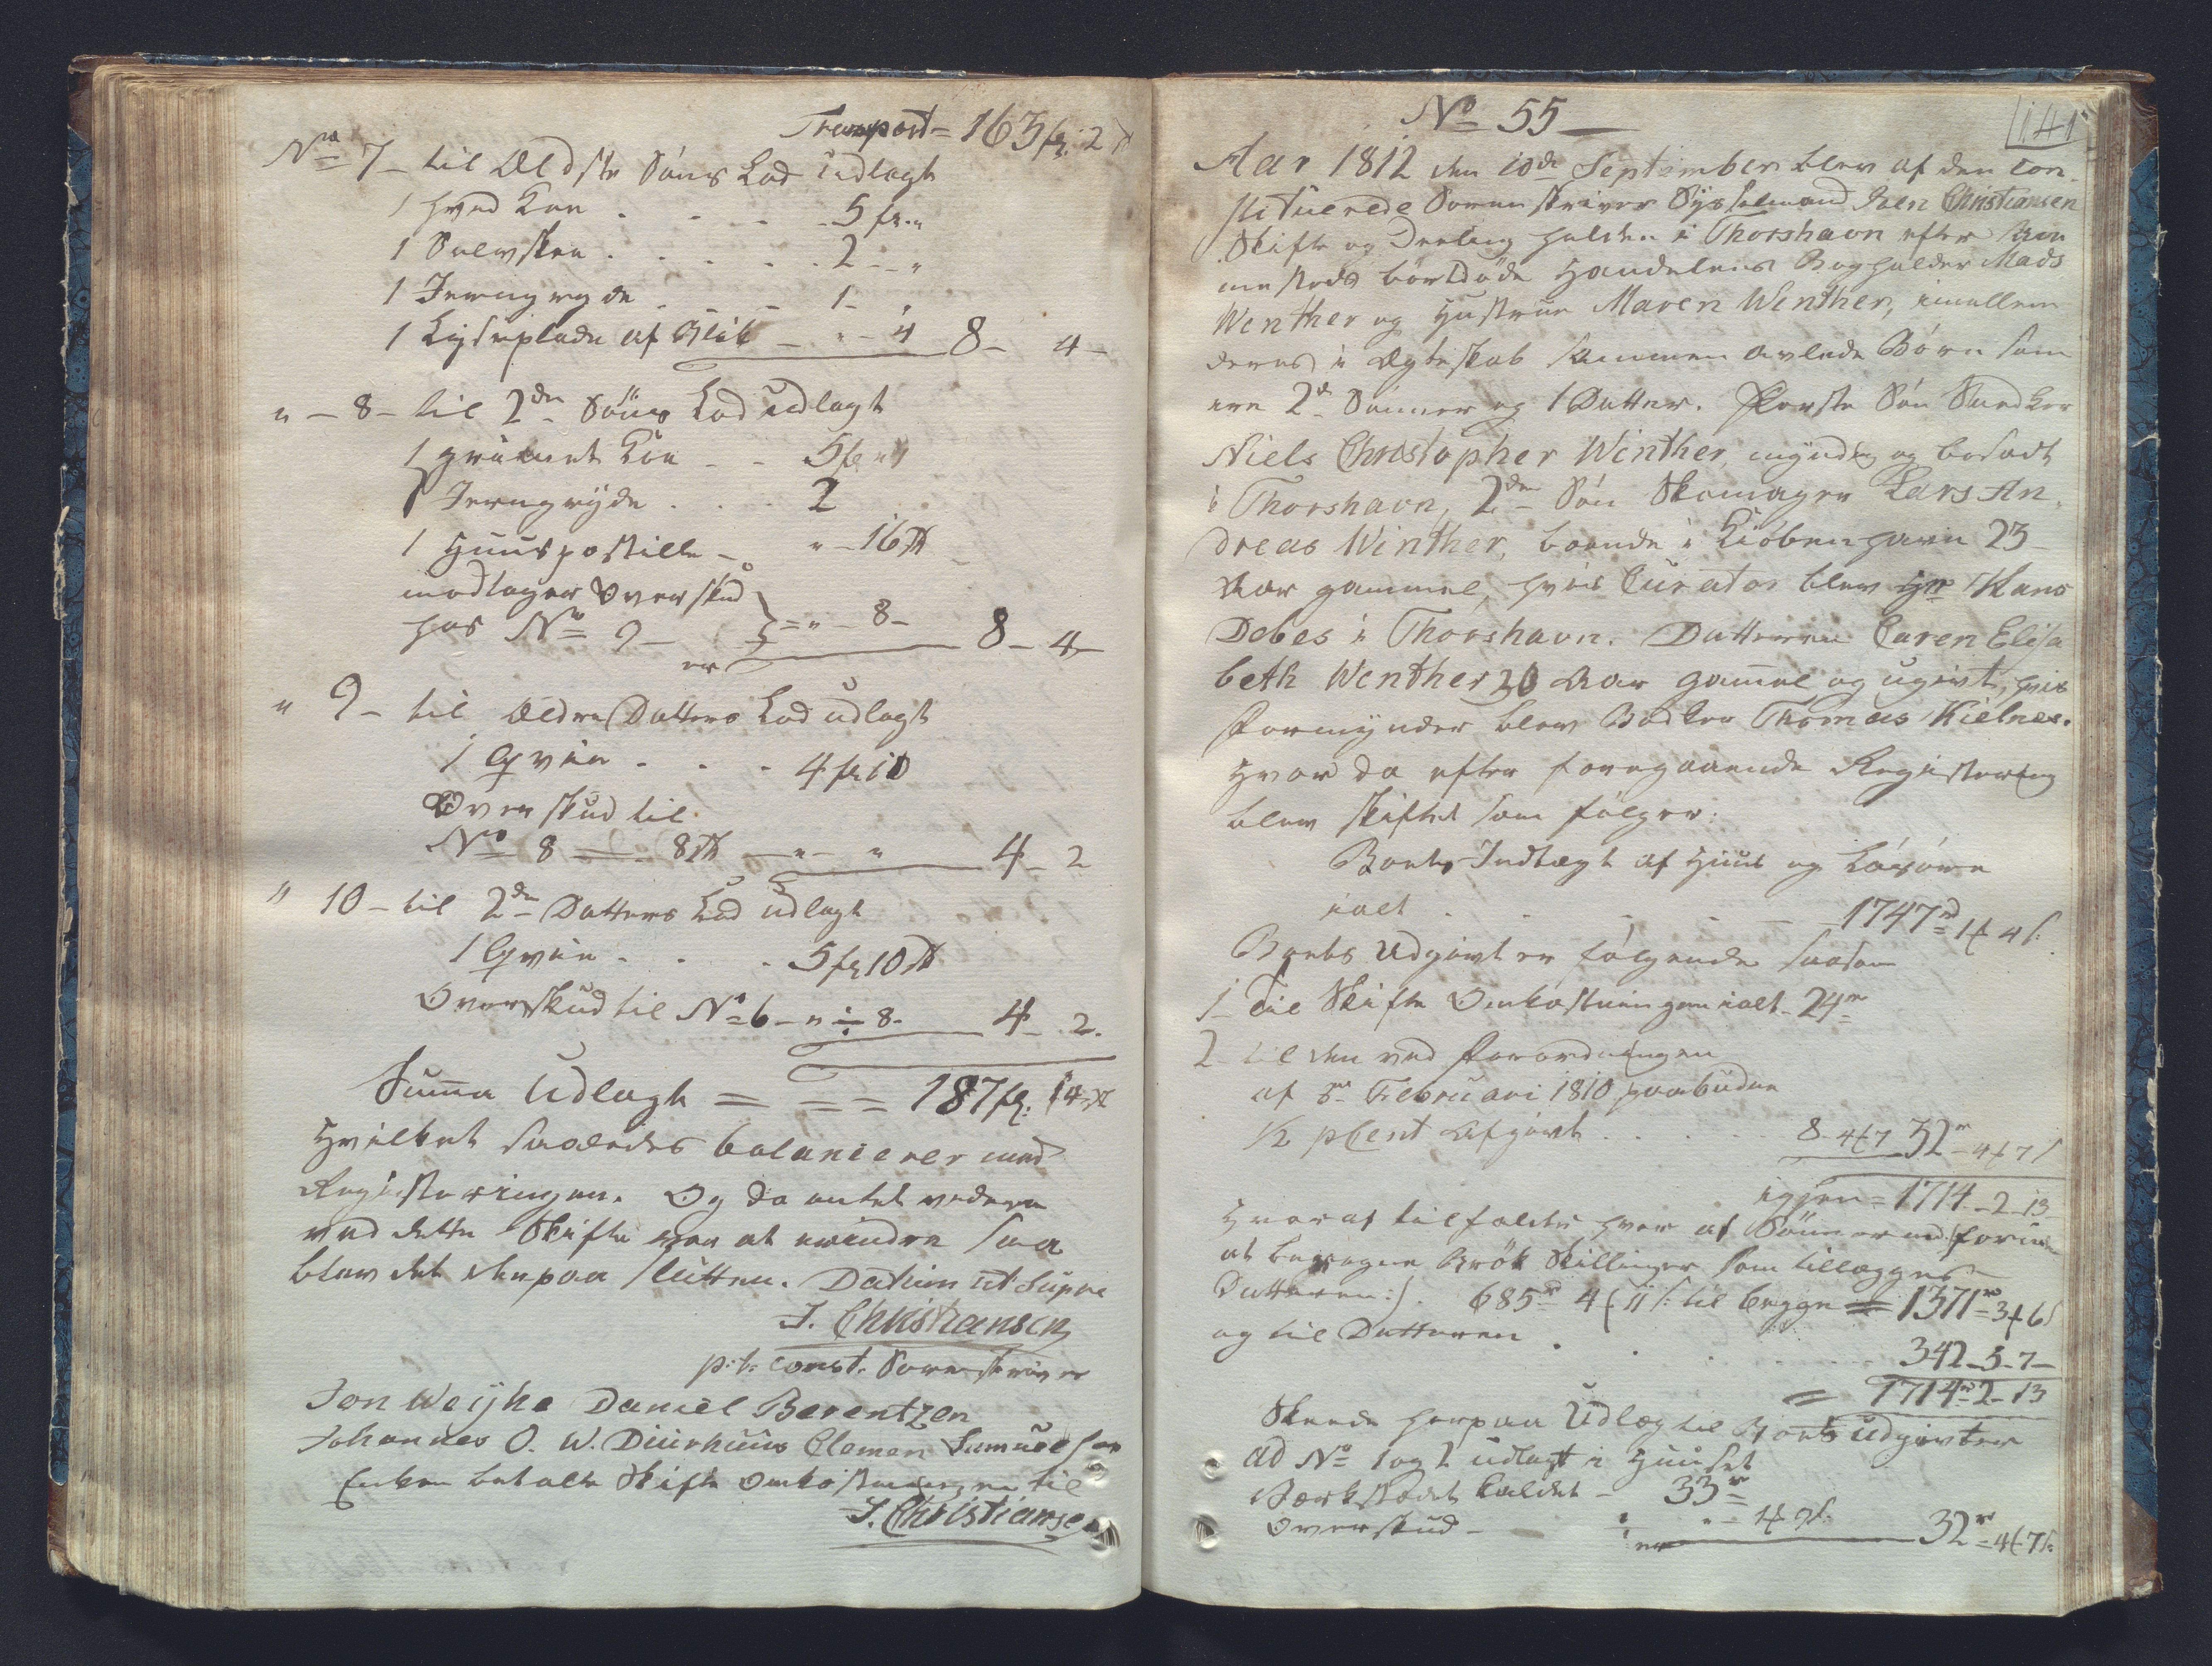 Transport = 163 fr: 2
No 7 – til Ældste Søns Lod udlagt
1 hvid Koe . . . 5 fr. "
1 Sølvskee . . . . 2 – "
1 Jerngryde . . . 1 – "
1 Lyseplade af Blik – " – 4 8 – 4 –
" – 8 – til 2den Søns Lod udlagt
1 Koe – – 5 fr "
1 Jerngryde . . . 2
1 Huuspostille – " – 16
modtager Overskud
hos No 9 – = " – 8 –
er 8 – 4 –
" 9 – til Ældre Datters Lod udlagt
1 Qvie . . . 4 fr 10
Overskud til
No 8 — 8 – " – " 4 – 2
" 10 – til 2den Datters Lod udlagt
1 Qvie . . . 5 fr 10
Overskud til No 6 – " ÷ 8 – 4 – 2.
Suma Udlagt = = = 187 fr: 14
Hvilket saaledes balancerer med
Registeringen. Og da intet videre
ved dette Skifte var at erindre saa
blev det derpaa slutten. Datum ut Supra
J. Christiansen
p: t: const. Sorenskriver
Jon Weyhe Daniel Berentzen
Johannes O. W. Diurhuus Clemen Samuelsen
Enken betalte Skifte Omkostningerne til
J. Christiansen
No 55 –
141
Aar 1812 den 10de September blev af den con-
stituerede Sorenskriver Sysselmand Joen Christiansen
Skifte og Deeling holden i Thorshavn efter
bortdøde Handelens Bogholder Mads
Wenther og Hustrue Maren Wenther, imellem
deres i Ægteskab sammen avlede Børn som
ere 2de Sønner og 1 Datter. Første Søn Snedker
Niels Christopher Winther, myndig og bosadt
i Thorshavn, 2den Søn Skomager Lars An-
dreas Winther, boende i Kiøbenhavn 23
Aar gammel, hvis Curator blev Hr Hans
Debes i Thorshavn. Datteren Caren Elisa
beth Wenther 20 Aar gamel og ugivt, hvis
Formynder blev Bødker Thomas Kielnes.
Hvor da efter foregaaende Registering
blev skiftet som følger:
Boets Indtægt af Huus og Løsøre
ialt . . . . 1747 rd 1 4 s:
Boets Udgivt er følgende saasom
1 – Til Skifte Omkostningen ialt – 24 r
2 – til den ved Forordningen
af 8de Februari 1810 paabudne
1/2 pCent Afgivt . . . . . 8 – 4 7 32 r – 4 7 s
igjen = 1714 – 2 – 13
Hvoraf tilfalder hver af Sønnerne
at Brøk Skillinger som tillægges
Datteren:) . 685 rd 4 11 s: til begge = 1371 r – 3 6 s
og til Datteren . . . . . 342 – 5 – 7 –
= 1714 r 2 – 13
Skeede herpaa Udlæg til Boets Udgivter
Ad No 1 og 2 udlagt i Huuset
Værkstædet kaldet – 33 r
Overskud – ÷ " – 1 9 s:
er 32 r – 4 7 s: